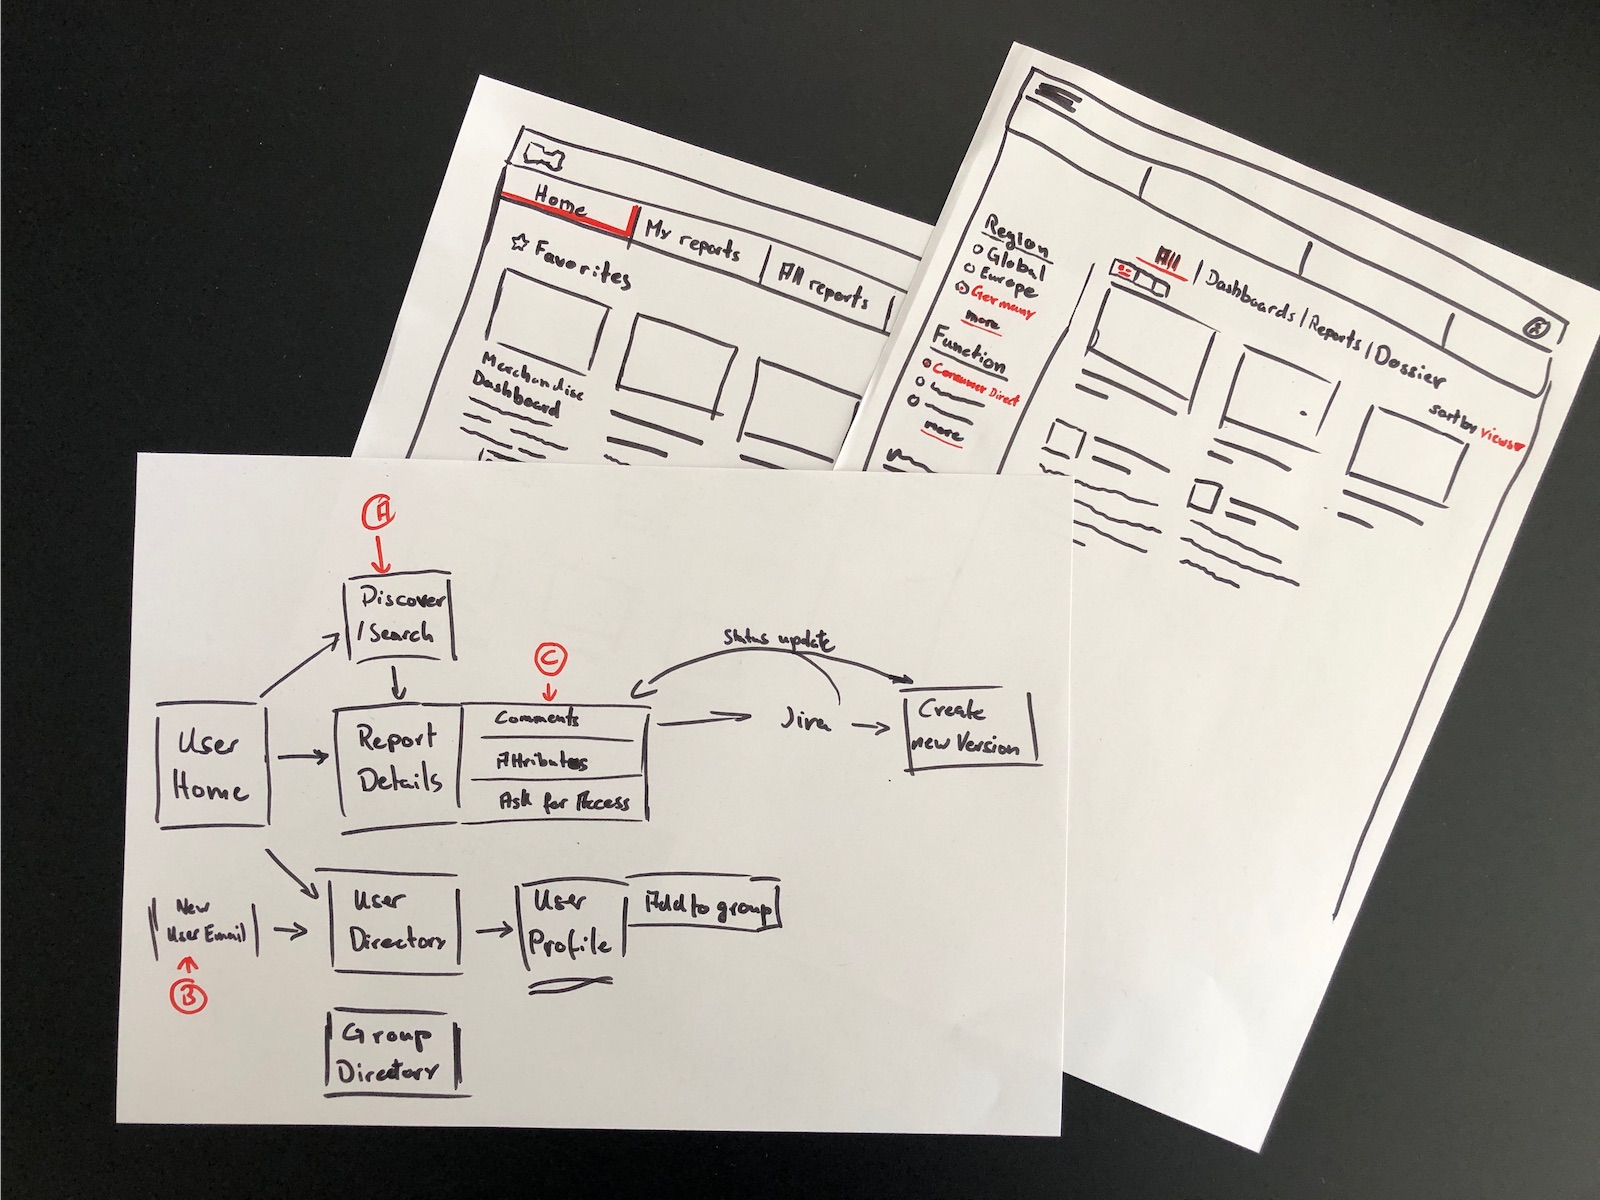 Home
My reports
All reports
Favorites
Merchandise
Dashboard
Region
Global
Europe
Germany
more
Function
Consumer Direct
more
All | Dashboards | Reports | Dossier
sort by views
A
Discover
/ Search
C
Status update
User
Home
Report
Details
Comments
Attributes
Ask for Access
Jira
Create
new Version
New
User Email
B
User
Directory
User
Profile
Add to group
Group
Directory